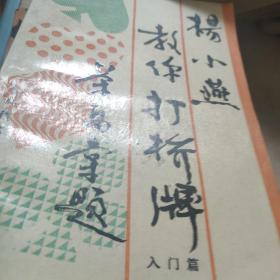 楊小燕
教你打桥牌
荣高棠题
入门篇